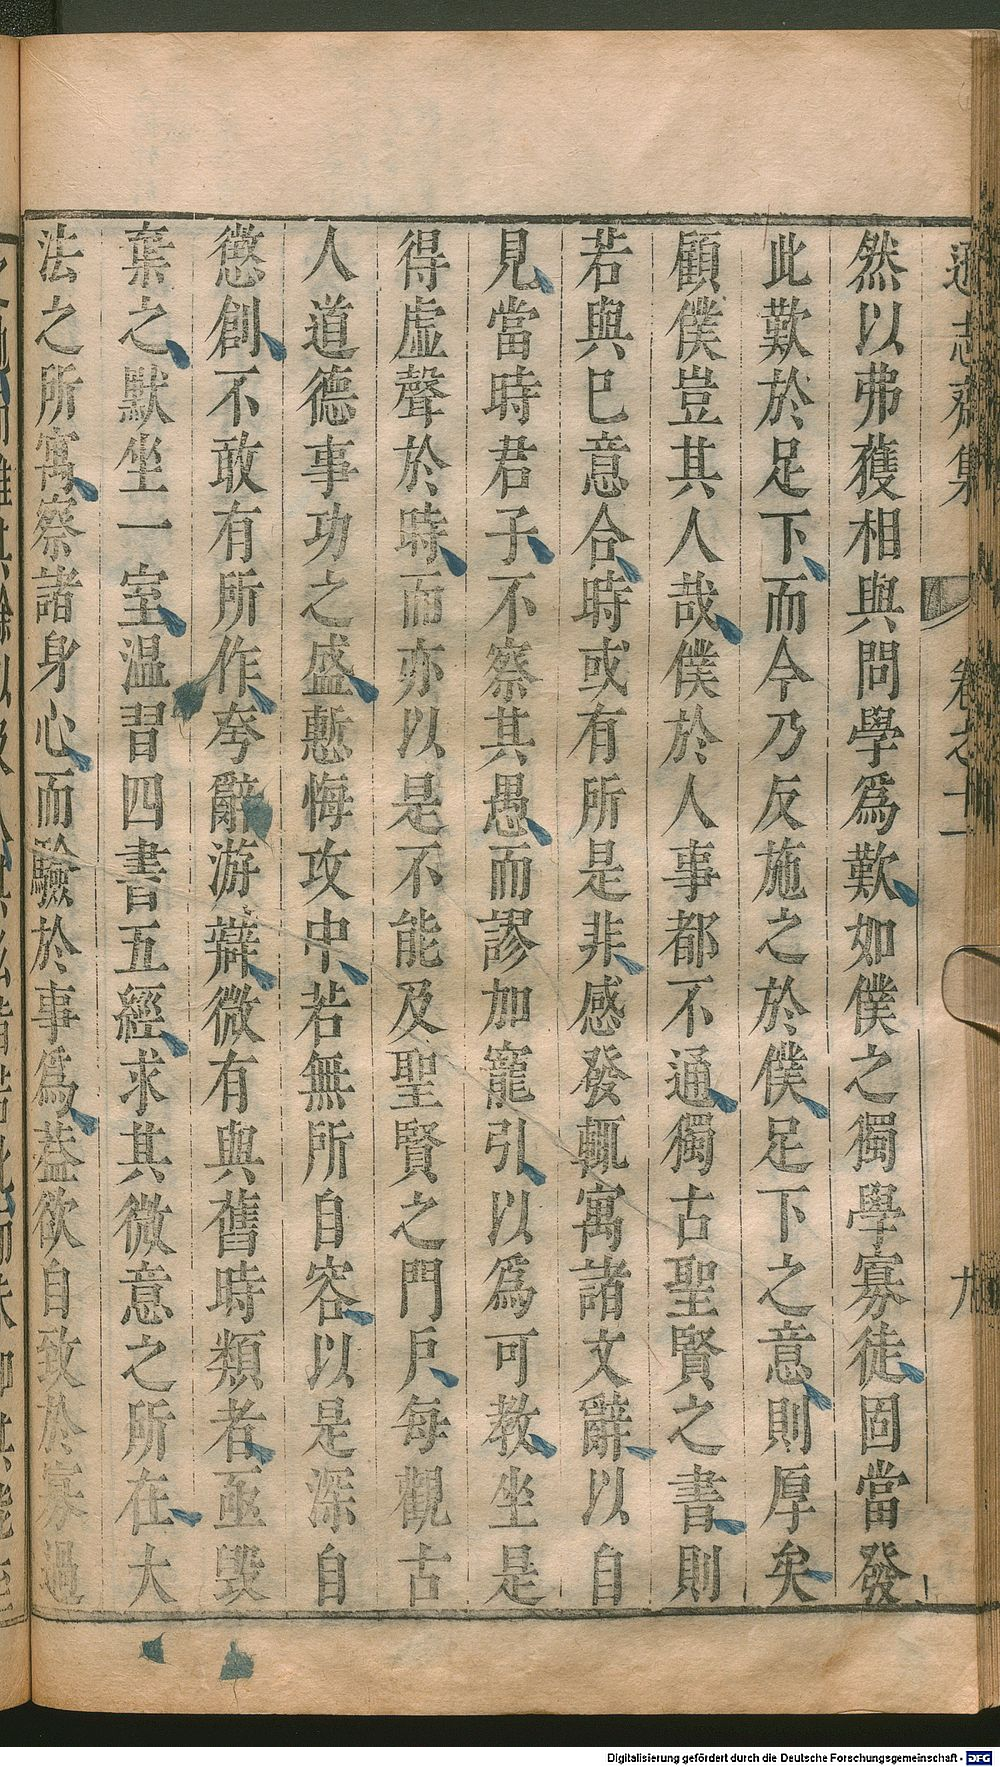 遜志齋集 卷之十一 九
然以弗獲相與問學爲歎如僕之獨學寡徒固當發
此歎於足下而今乃反施之於僕足下之意則厚矣
顧僕豈其人哉僕於人事都不通獨古聖賢之書則
若與巳意合時或有所是非感發輒寓諸文辭以自
見當時君子不察其愚而謬加寵引以爲可教坐是
得虛聲於時而亦以是不能及聖賢之門戶每觀古
人道德事功之盛慙悔攻中若無所自容以是深自
懲創不敢有所作夸辭游辯微有與舊時類者亟毀
棄之默坐一室温習四書五經求其微意之所在大
法之所寓察諸身心而驗於事爲蓋欲自致於寡過
Digitalisierung gefördert durch die Deutsche Forschungsgemeinschaft - DFG